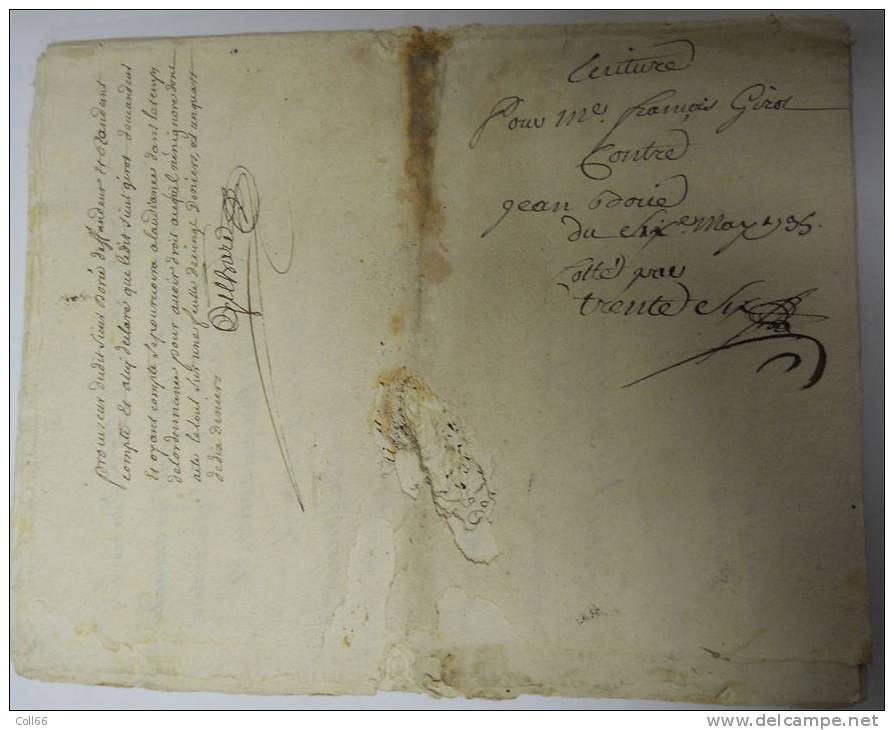 Ecriture
Pour Me. françois Girot
Contre
jean Dorié
du six.e May 1735
Cotté par
trente six
procureur dudit sieur Dorié deffandeur Et Randant
compte Et a luy declaré que ledit sieur girot demandeur
Et oyant compte se pourvoira a laudiance dans le temps
de lordonnance pour avoir droit auquil nen ignore dont
acte le tout sur une feuille de vingt deniers, et un quart
de dix deniers
Gilbard
Coll66
delcampe.net